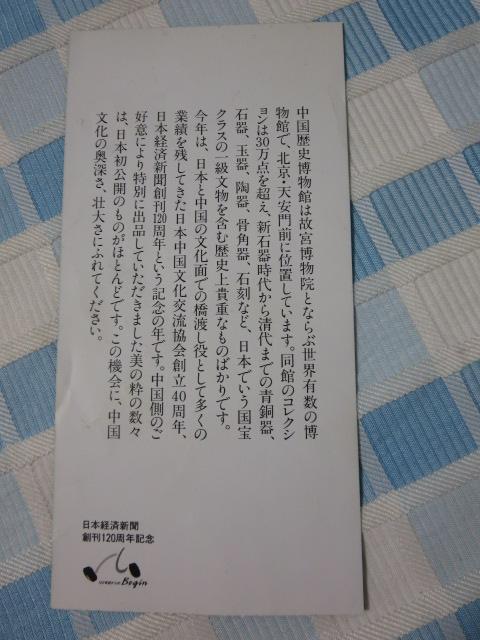 中国歴史博物館は故宮博物院とならぶ世界有数の博
物館で、北京・天安門前に位置しています。同館のコレクシ
ョンは30万点を超え、新石器時代から清代までの青銅器、
石器、玉器、陶器、骨角器、石刻など、日本でいう国宝
クラスの一級文物を含む歴史上貴重なものばかりです。
今年は、日本と中国の文化面での橋渡し役として多くの
業績を残してきた日本中国文化交流協会創立40周年、
日本経済新聞創刊120周年という記念の年です。中国側のご
好意により特別に出品していただきました美の粋の数々
は、日本初公開のものがほとんどです。この機会に、中国
文化の奥深さ、壮大さにふれてください。
日本経済新聞
創刊120周年記念
Begin